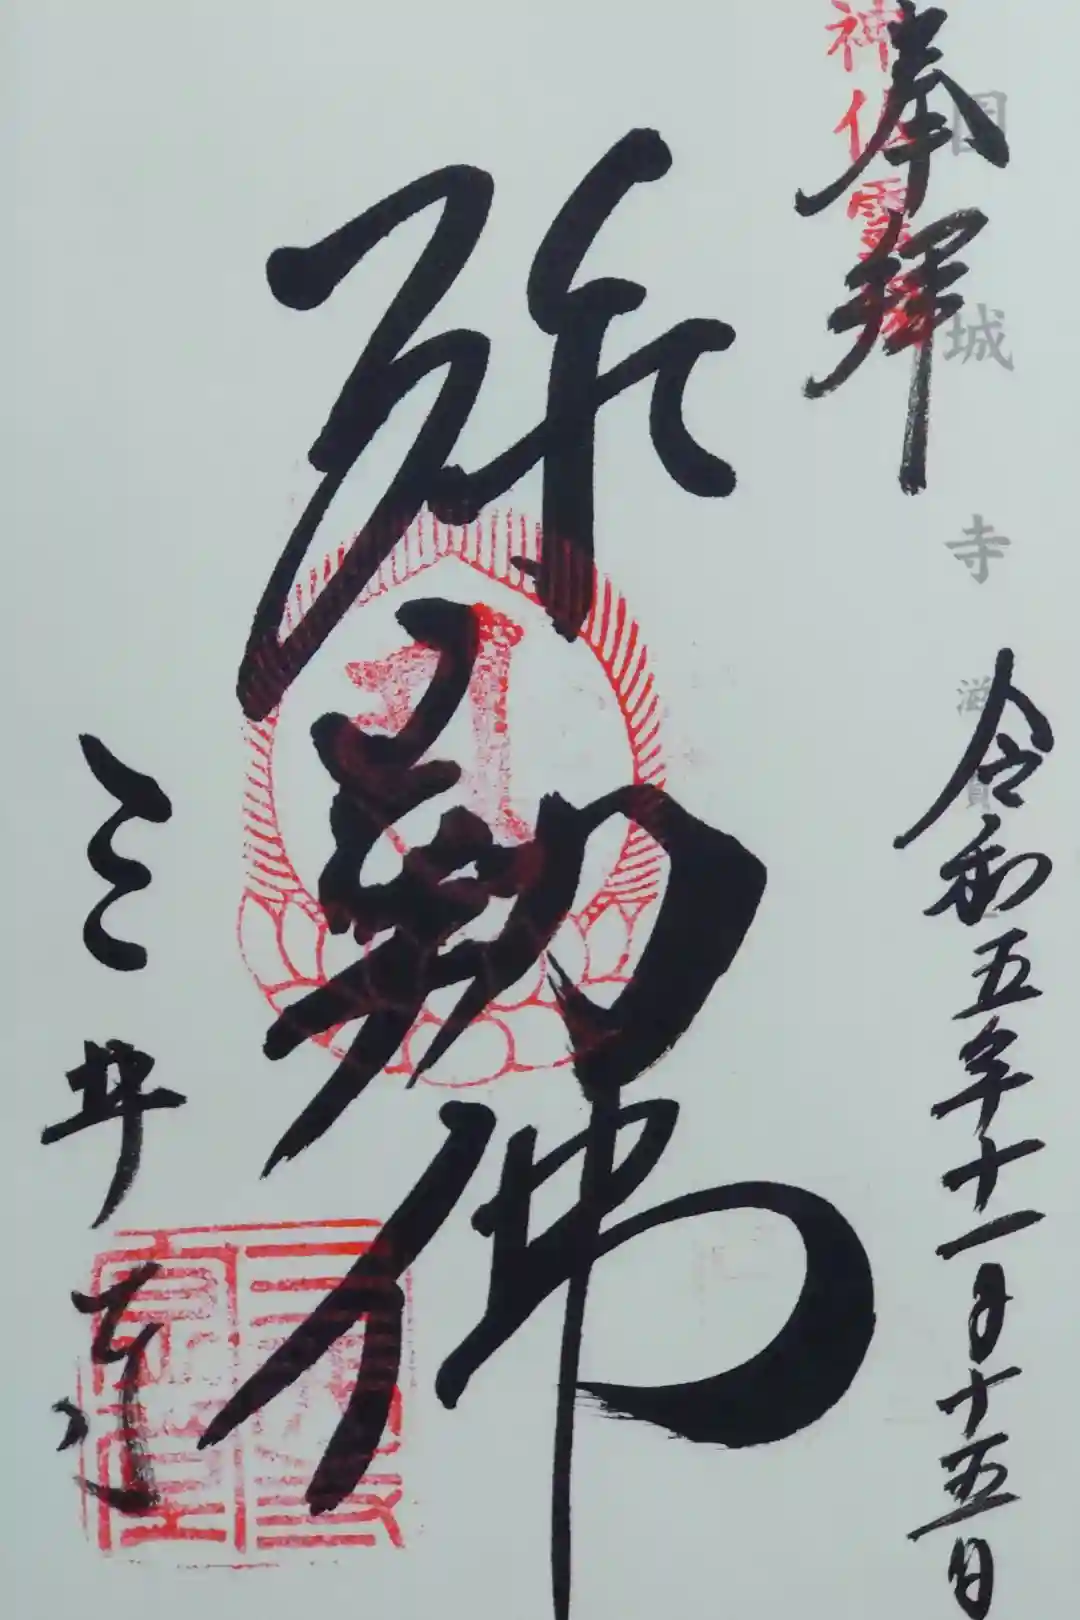 奉拝
神仏霊場
園城寺 滋賀
令和五年十一月十五日
弥勒佛
三井寺